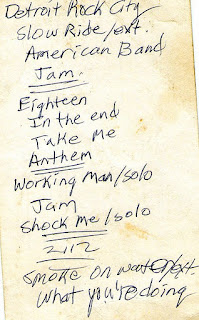 Detroit Rock City
Slow Ride/ext.
American Band
Jam
Eighteen
In the end
Take Me
Anthem
Working Man/solo
Jam
Shock me/solo
2112
Smoke on water/ext
What you're doing